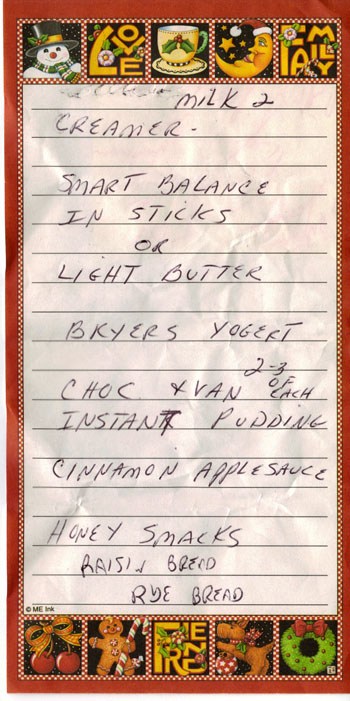 LOVE
FAMILY
MILK 2
CREAMER-
SMART BALANCE
IN STICKS
OR
LIGHT BUTTER
BRYERS YOGERT
2-3
OF
EACH
CHOC & VAN
INSTANT PUDDING
CINNAMON APPLESAUCE
HONEY SMACKS
RAISIN BREAD
RYE BREAD
© ME Ink